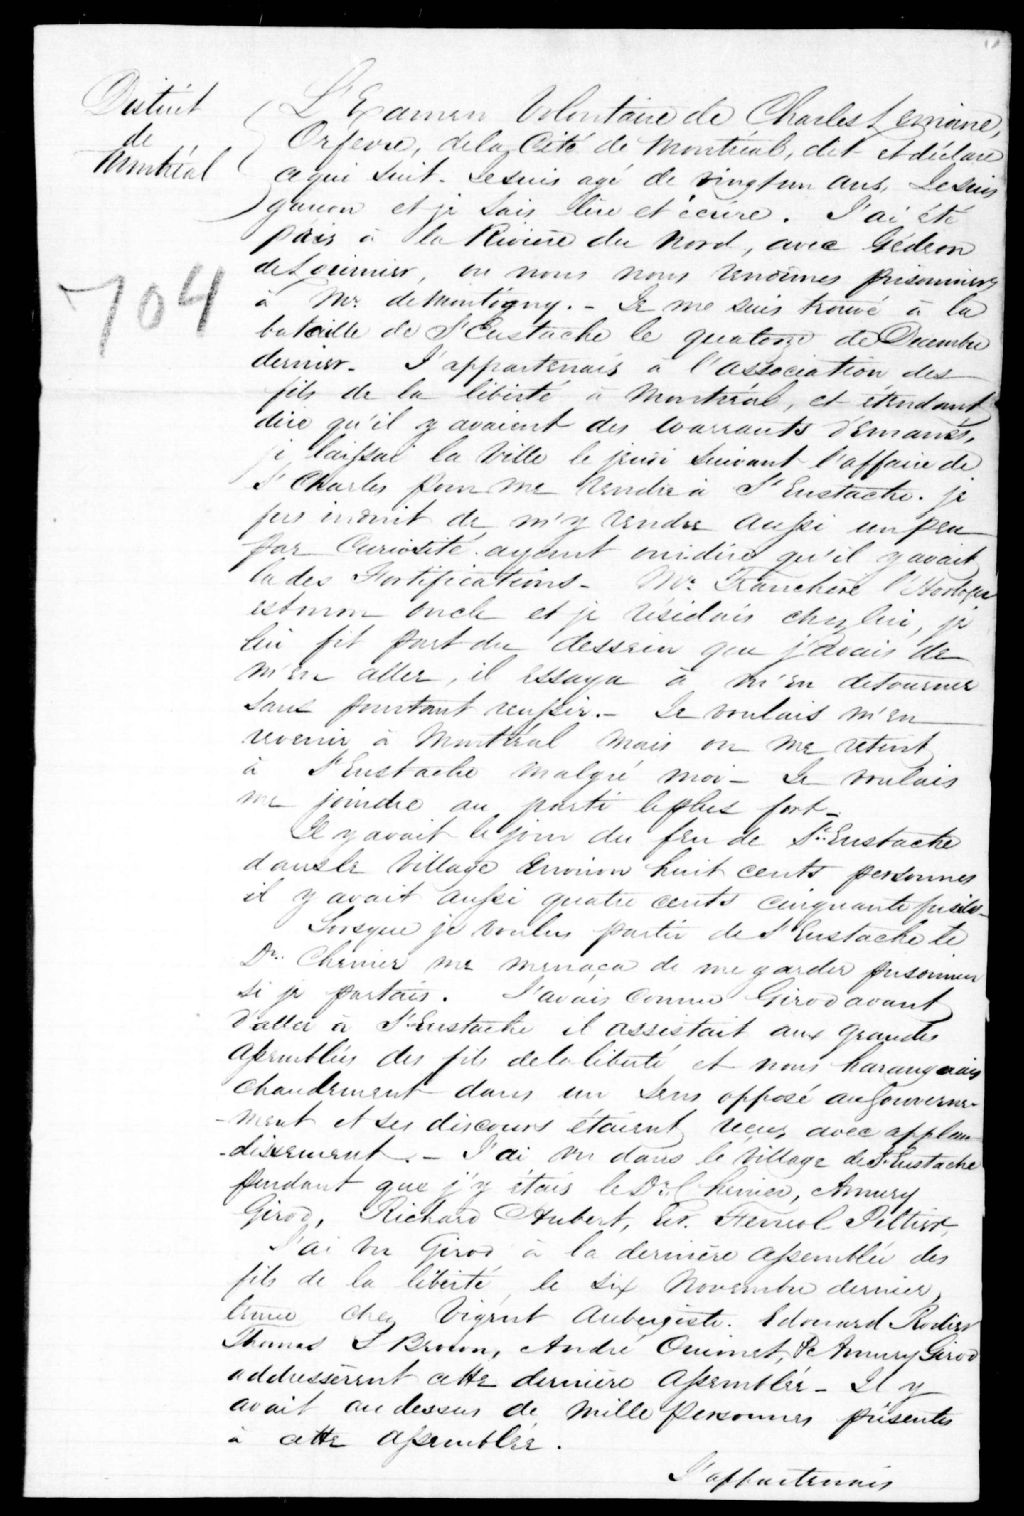 District
de
Montréal
L'Examen Volontaire de Charles Lemoine,
Orfevre, de la Cité de Montréal, dit et déclare
ce qui suit. Je suis agé de vingt un ans, Je suis
garçon et je sais lire et écrire. J'ai été
pris à la Rivière du Nord, avec Gédeon
de Lorimier, ou nous nous rendimes prisonniers
à Mr. de Montigny. - Je me suis trouvé à la
bataille de St Eustache le quatorze de Decembre
dernier. J'appartenais à l'association des
fils de la liberté à Montréal, et étendant
dire qu'il y avaient des warrants d'émanés,
je laissai la Ville le jeudi suivant l'affaire de
St Charles pour me rendre à St Eustache. je
fus induit de m'y rendre aussi un peu
par Curiosité ayant ouidire qu'il y avait
la des Fortifications - Mr. Franchère l'Horloger
est mon oncle et je résidais chez lui, je
lui fit part du dessein que j'avais de
m'en aller, il essaya à m'en detourner
sans pourtant reussir. - Je voulais m'en
revenir à Montréal mais on me retint
à St Eustache malgré moi - Je voulais
me joindre au parti le plus fort -
Il y avait le jour du feu de St. Eustache
dans le Village environ huit cents personnes
il y avait aussi quatre cents cinquante fusils -
Lorsque je voulus partir de St Eustache le
Dr. Chenier me menaça de me garder prisonnier
si je partais. J'avais connu Girod avant
d'aller à St Eustache il assistait aux grandes
assemblées des fils de la liberté et nous haranguais
chaudement dans un sens opposé au Gouverne-
-ment et ses discours étaient recus avec applau-
-dissement. - J'ai vu dans le Village de St Eustache
pendant que j'y étais le Dr. Chenier, Amury
Girod, Richard Hubert, Ferreol Peltier,
J'ai vu Girod à la dernière assemblée des
fils de la liberté, le six Novembre dernier,
tenue chez Vigent Aubergiste. Edouard Rodier
Thomas S Brown, André Ouimet, & Amury Girod
addressèrent cette dernière assemblée - Il y
avait au dessus de mille personnes présentes
à cette assemblée.
J'appartenais
704